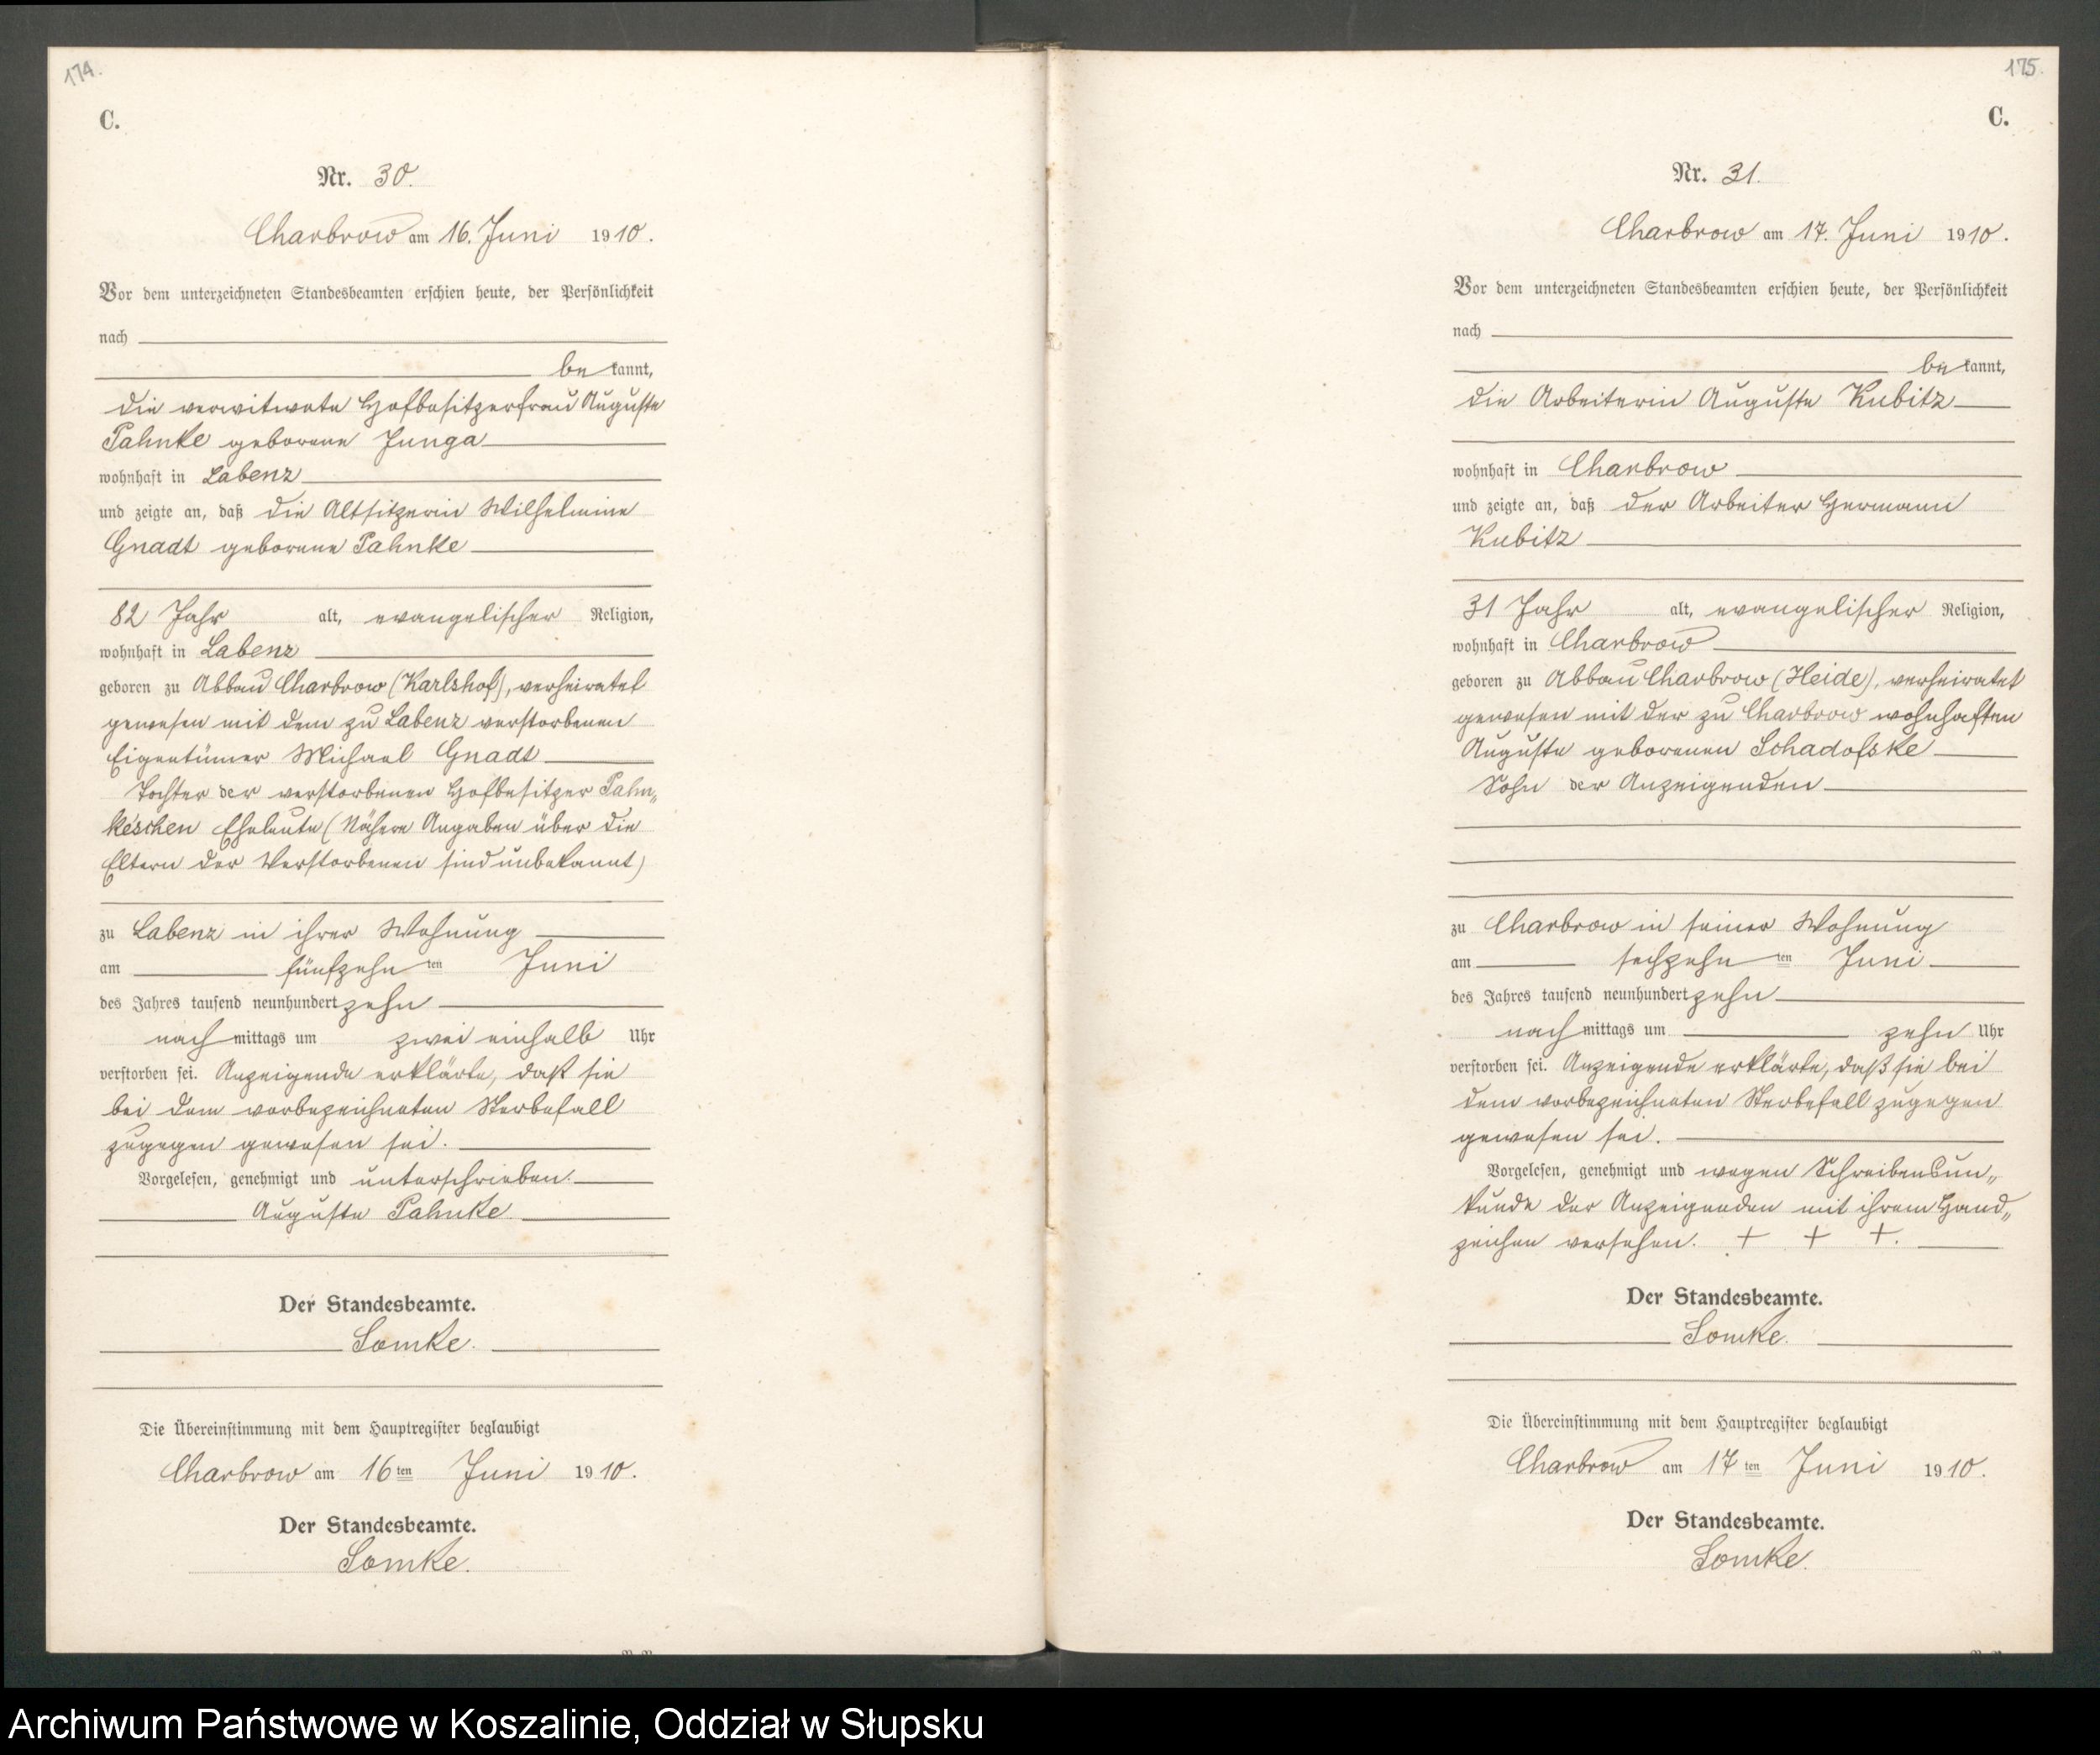 174.
C.
Nr. 30.
Charbrow am 16. Juni 1910.
Vor dem unterzeichneten Standesbeamten erschien heute, der Persönlichkeit
nach
be kannt,
die verwitwete Hofbesitzerfrau Auguste
Pahnke geborene Junga
wohnhaft in Labenz
und zeigte an, daß die Altsitzerin Wilhelmine
Gnadt geborene Pahnke
82 Jahr alt, evangelischer Religion,
wohnhaft in Labenz
geboren zu Abbau Charbrow (Karlshof), verheiratet
gewesen mit dem zu Labenz verstorbenen
Eigentümer Michael Gnadt
Tochter der verstorbenen Hofbesitzer Pahn„
ke'schen Eheleute (Nähere Angaben über die
Eltern der Verstorbenen sind unbekannt)
zu Labenz in ihrer Wohnung
am fünfzehn ten Juni
des Jahres tausend neunhundert zehn
nach mittags um zwei einhalb Uhr
verstorben sei. Anzeigende erklärte, daß sie
bei dem vorbezeichneten Sterbefall
zugegen gewesen sei.
Vorgelesen, genehmigt und unterschrieben.
Auguste Pahnke
Der Standesbeamte.
Lomke.
Die Übereinstimmung mit dem Hauptregister beglaubigt
Charbrow am 16 ten Juni 1910.
Der Standesbeamte.
Lomke.
175.
C.
Nr. 31.
Charbrow am 17. Juni 1910.
Vor dem unterzeichneten Standesbeamten erschien heute, der Persönlichkeit
nach
be kannt,
die Arbeiterin Auguste Kubitz
wohnhaft in Charbrow
und zeigte an, daß der Arbeiter Hermann
Kubitz
31 Jahr alt, evangelischer Religion,
wohnhaft in Charbrow
geboren zu Abbau Charbrow (Heide), verheiratet
gewesen mit der zu Charbrow wohnhaften
Auguste geborenen Schadofske
Sohn der Anzeigenden
zu Charbrow in seiner Wohnung
am sechzehn ten Juni
des Jahres tausend neunhundert zehn
nach mittags um zehn Uhr
verstorben sei. Anzeigende erklärte, daß sie bei
dem vorbezeichneten Sterbefall zugegen
gewesen sei.
Vorgelesen, genehmigt und wegen Schreibensun„
kunde der Anzeigenden mit ihrem Hand„
zeichen versehen. + + +.
Der Standesbeamte.
Lomke.
Die Übereinstimmung mit dem Hauptregister beglaubigt
Charbrow am 17 ten Juni 1910.
Der Standesbeamte.
Lomke.
Archiwum Państwowe w Koszalinie, Oddział w Słupsku